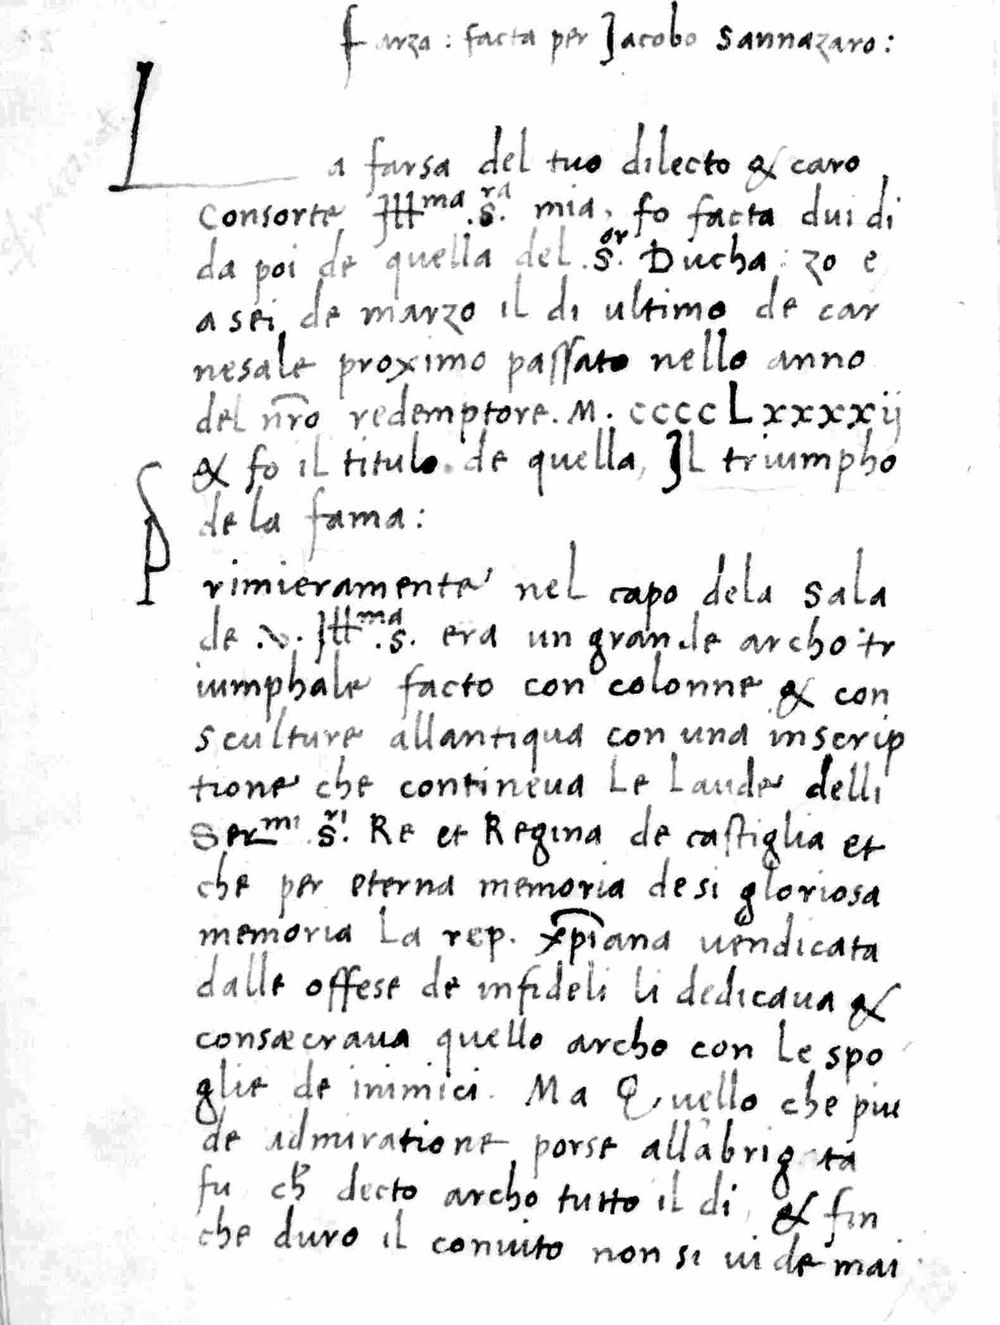 Farza : facta per Jacobo Sannazaro :
La farsa del tuo dilecto & caro
Consorte Jllma .S.ra mia, fo facta dui di
da poi de quella del .S.or Ducha : zo e
a sei de marzo il di ultimo de car
nesale proximo passato nello anno
del nro redemptore. M. cccc Lxxxxij
& fo il titulo de quella, Jl triumpho
de la fama :
Primieramente nel capo dela Sala
de .v. Jllma .S. era un grande archo tr
iumphale facto con colonne & con
sculture allantiqua con una inscrip
tione che contineua Le Laude delli
Sermi .S.ri Re et Regina de castiglia et
che per eterna memoria de si gloriosa
memoria La rep. xpiana uendicata
dalle offese de infideli li dedicaua &
consæcraua quello archo con Le spo
glie de inimici. Ma Quello che piu
de admiratione porse alla brigata
fu ch decto archo tutto il di, & fin
che duro il conuito non si uide mai